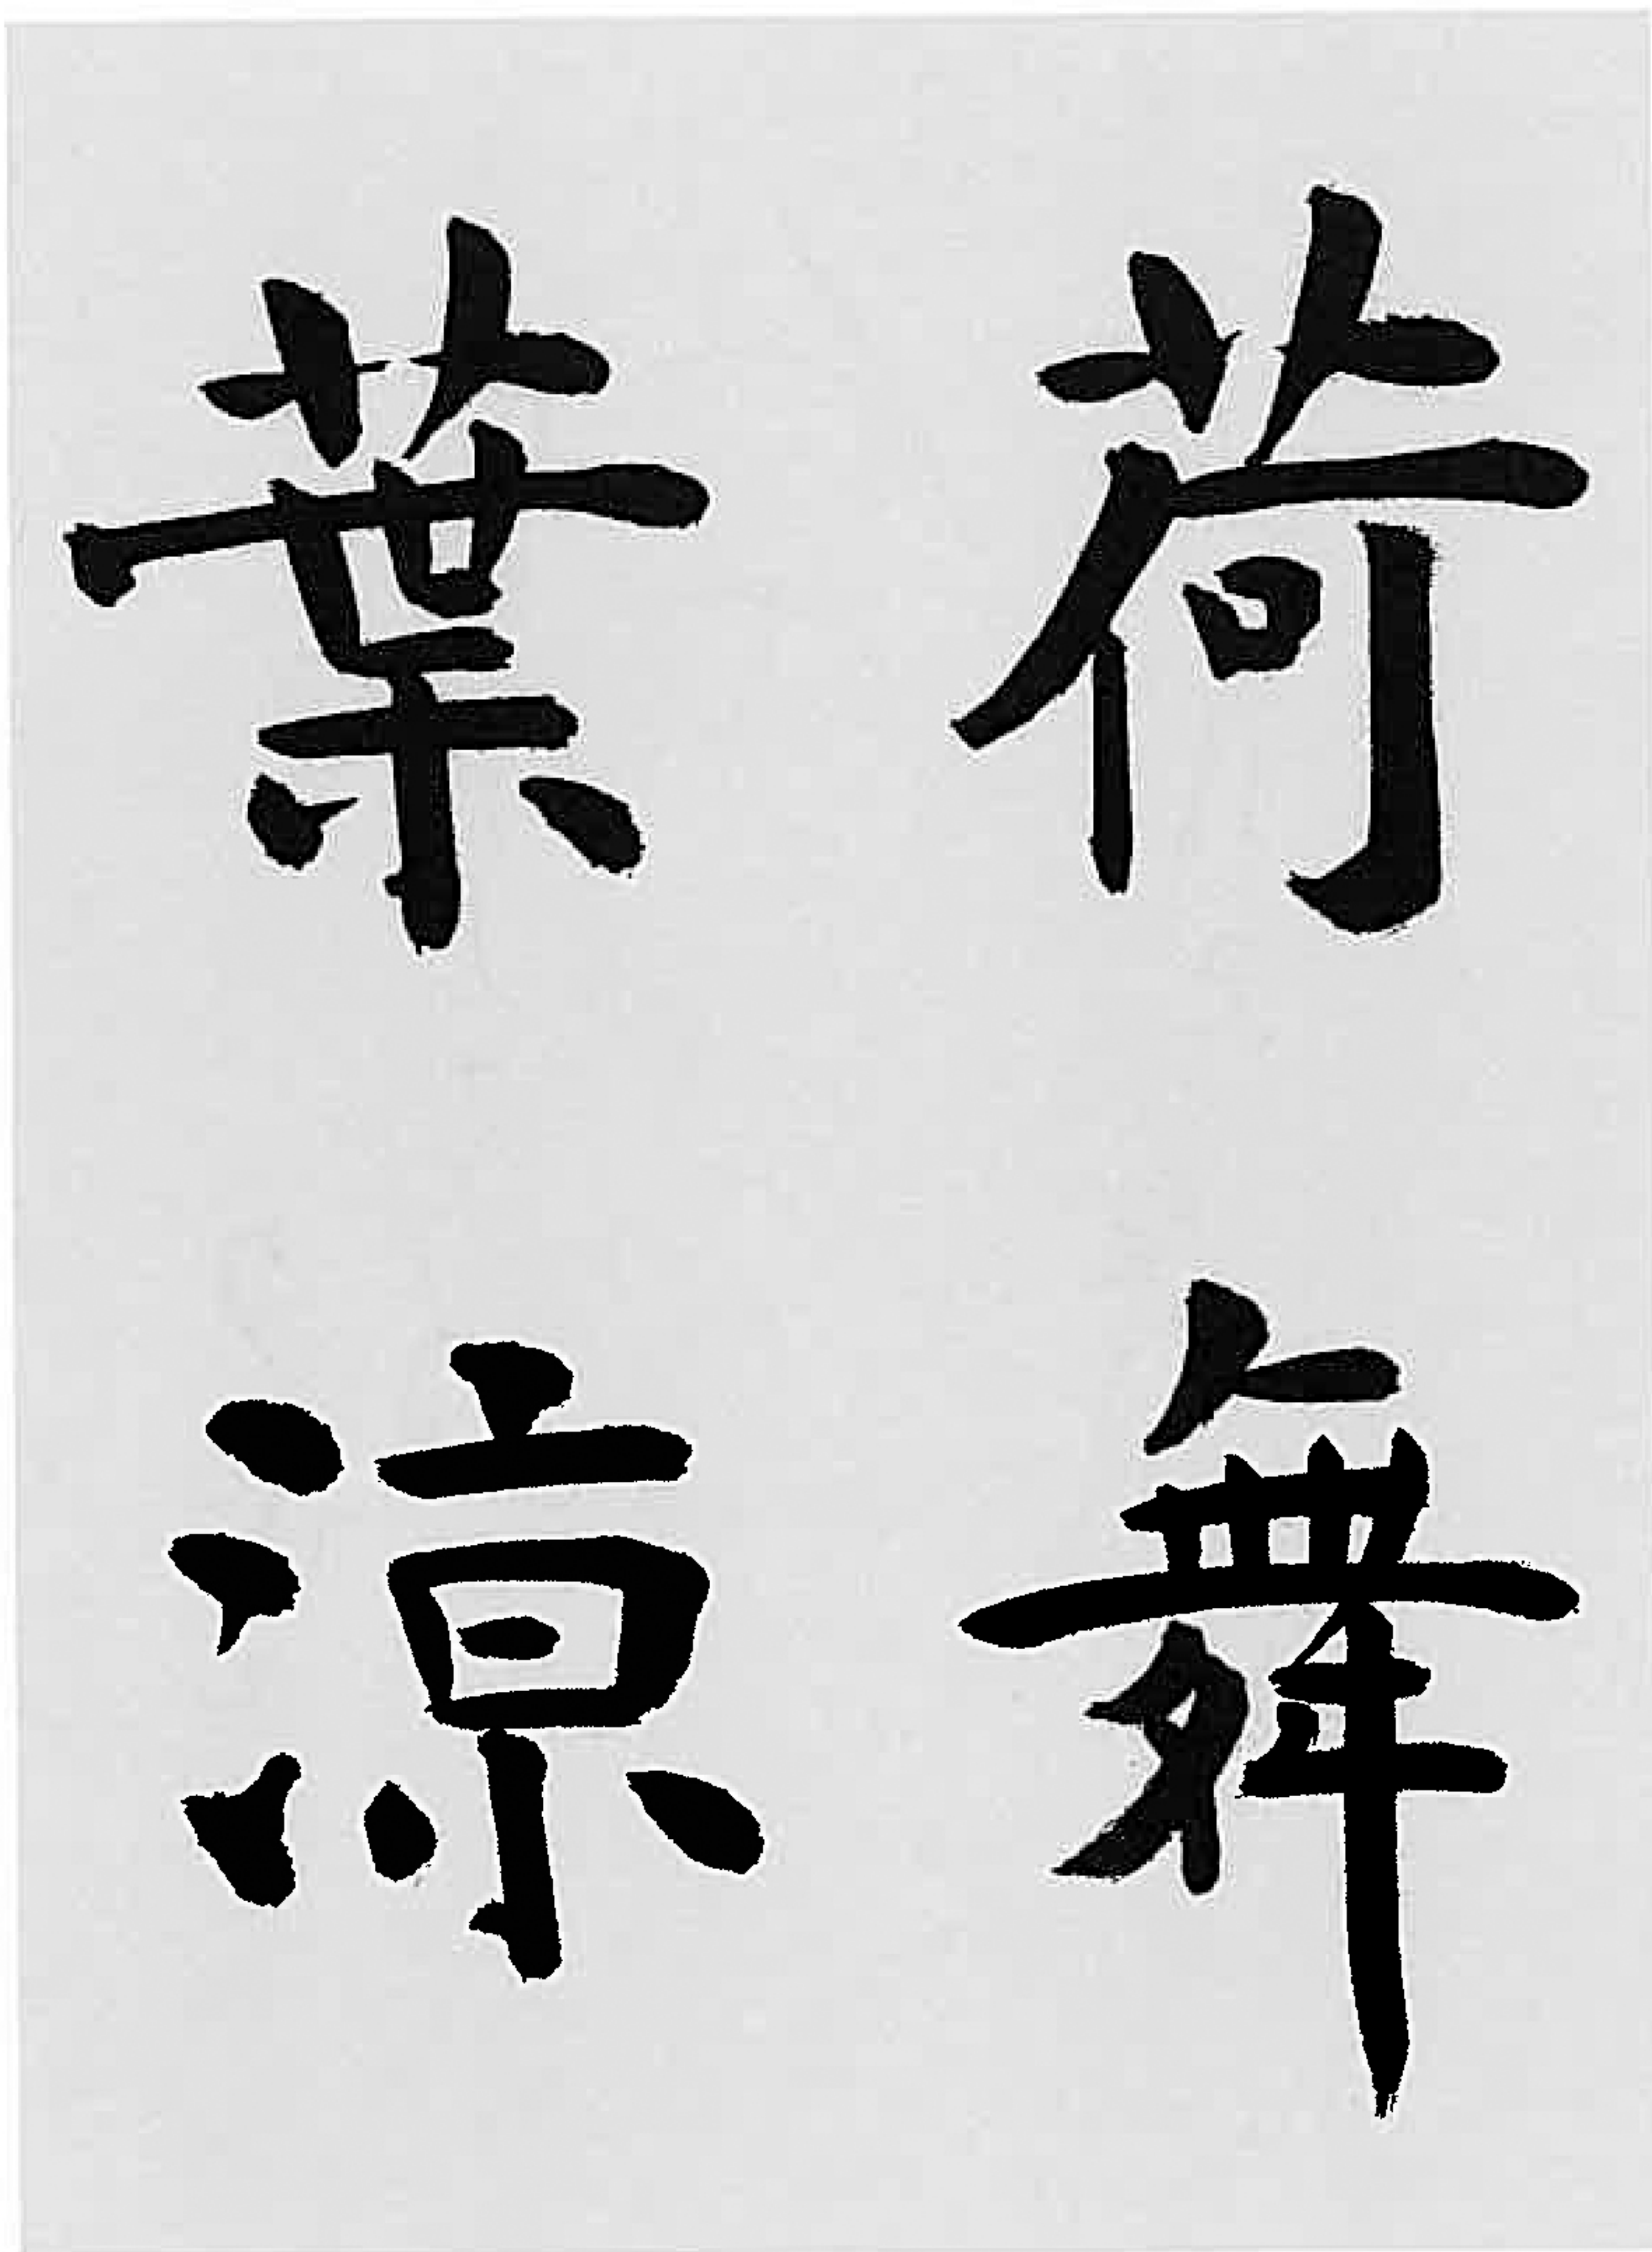 荷舞
葉涼